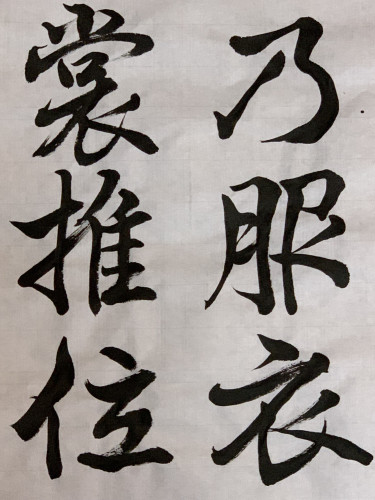 乃服衣
裳推位